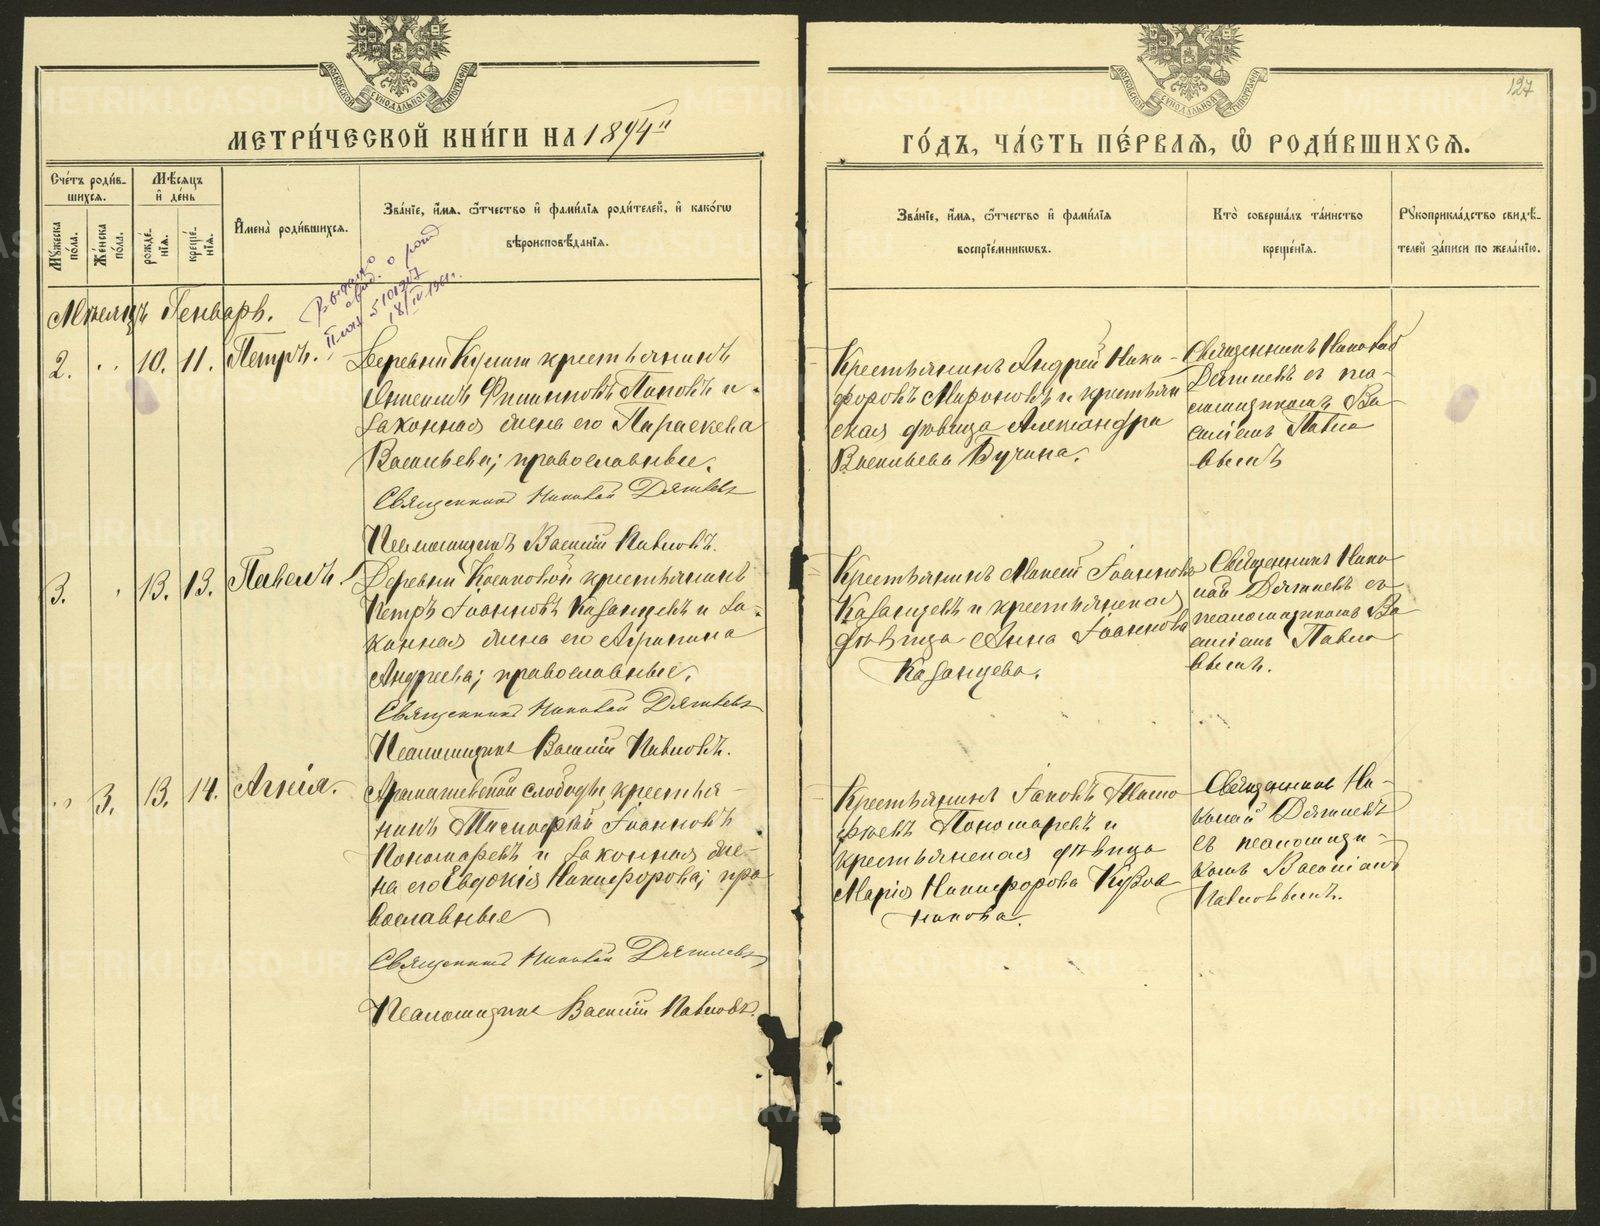 МОСКОВСКОЙ СѴНОДАЛЬНОЙ ТИПОГРАФІИ
МЕТРИ́ЧЕСКОЙ КНИ́ГИ НА 1894й
Сче́тъ роди́в-
шихся.
Мѣ́сяцъ
и҆ де́нь
Мꙋ́жеска
по́ла.
Же́нска
по́ла.
рожде́-
нїѧ.
креще́-
нїѧ.
И҆мена̀ роди́вшихся.
Зва́нїе, и҆́мя, ѻ҆́тчество и҆ фами́лїя роди́телей, и҆ како́гѡ
вѣроисповѣ́данїя.
Выдано
свид. о рожд
18/IV 1961г.
Мѣсяцъ Генварь.
2. " 10. 11. Петръ.
Деревни крестьянинъ
Филипповъ Пановъ и
законная жена его Параскева
Васильева; православные.
Священникъ Николай Дягилевъ
Псаломщикъ Василій Павловъ.
3. " 13. 13. Павелъ.
Деревни Косиковой крестьянинъ
Петръ Іоанновъ Казанцевъ и за-
конная жена его Агрипина
Андреева; православные.
Священникъ Николай Дягилевъ
Псаломщикъ Василій Павловъ.
" 3. 13. 14. Агнія.
Арамашевской слободы, крестья-
нинъ Іоанновъ
Пономаревъ и законная же-
на его Евдокія Никифорова; пра-
вославные
Священникъ Николай Дягилевъ
Псаломщикъ Василій Павловъ.
127
МОСКОВСКОЙ СѴНОДАЛЬНОЙ ТИПОГРАФІИ
ГО́ДЪ, ЧА́СТЬ ПЕ́РВАЯ, Ѽ РОДИ́ВШИХСЯ.
Зва́нїе, и҆́мя, ѻ҆́тчество и҆ фами́лїя
воспрїе́мникѡвъ.
Кто̀ соверша́лъ та́инство
креще́нїя.
Рꙋкоприкла́дство свидѣ́-
телей за́писи по жела́нїю.
Крестьянинъ Андрей Ники-
форовъ Мироновъ и крестьян
ская дѣвица Александра
Васильева Бучина.
Священникъ Николай
Дягилевъ съ пса-
ломщикомъ Ва-
силіемъ Павло
вымъ
Крестьянинъ Моисей Іоанновъ
Казанцевъ и крестьянская
дѣвица Анна Іоаннова
Казанцева.
Священникъ Нико
лай Дягилевъ съ
псаломщикомъ Ва
силіемъ Павло
вымъ.
Крестьянинъ Іаковъ Тимо
фѣевъ Пономаревъ и
крестьянская дѣвица
Марія Никифорова Кузов
никова.
Священникъ Ни-
колай Дягилевъ
съ псаломщи-
комъ Василіемъ
Павловымъ.
METRIKI.GASO-URAL.RU